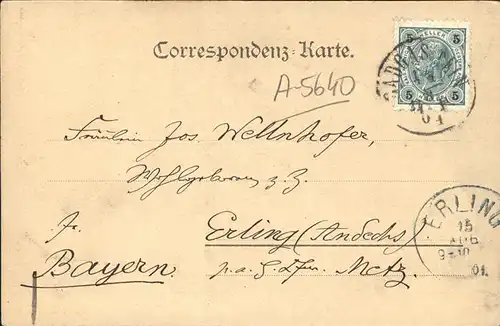 Correspondenz-Karte.
A-5640
5 HELLER 5
5 5
Fräulein Jos. Wellnhofer,
Wohlgeboren z. Z.
Fr. Erling (Andechs).
Bayern. p. a. H. Metz.
ERLING
15
AUG
01.